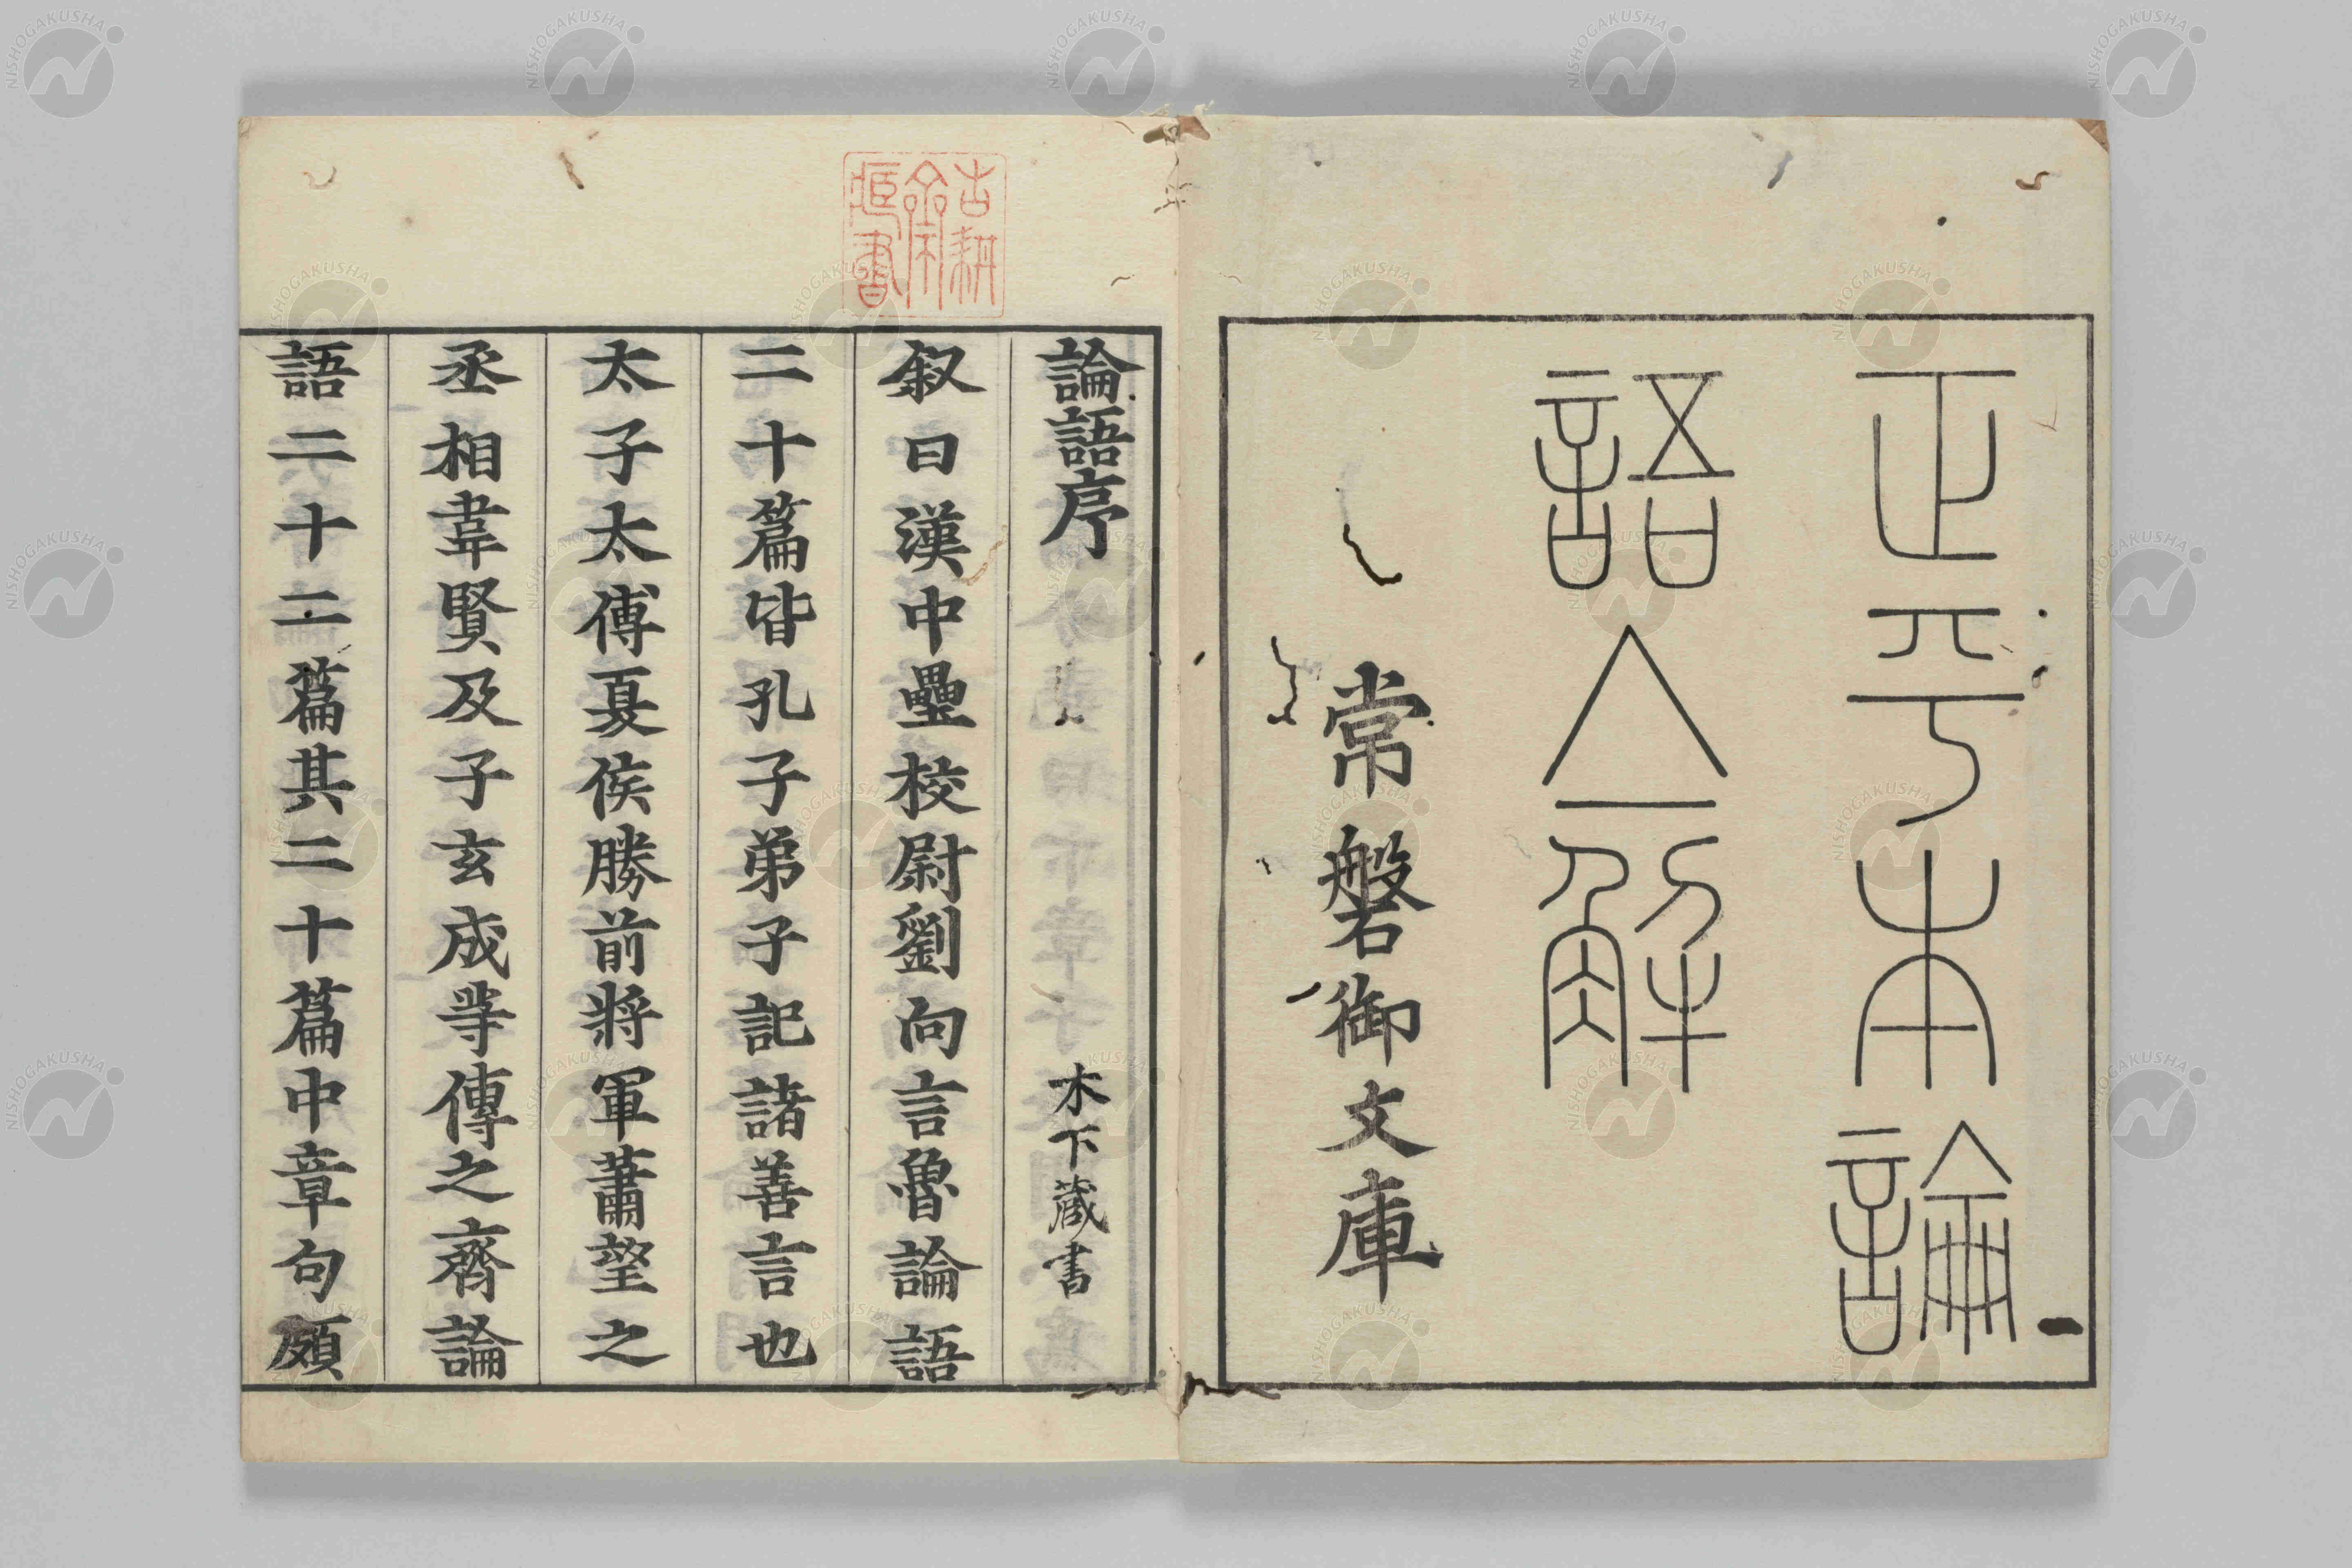 正平本論
語亼解
常磐御文庫
論語序
木下蔵書
叙曰漢中壘校尉劉向言魯論語
二十篇皆孔子弟子記諸善言也
太子太傅夏侯勝前將軍蕭望之
丞相韋賢及子玄成等傳之齊論
語二十二篇其二十篇中章句頗
NISHOGAKUSHA